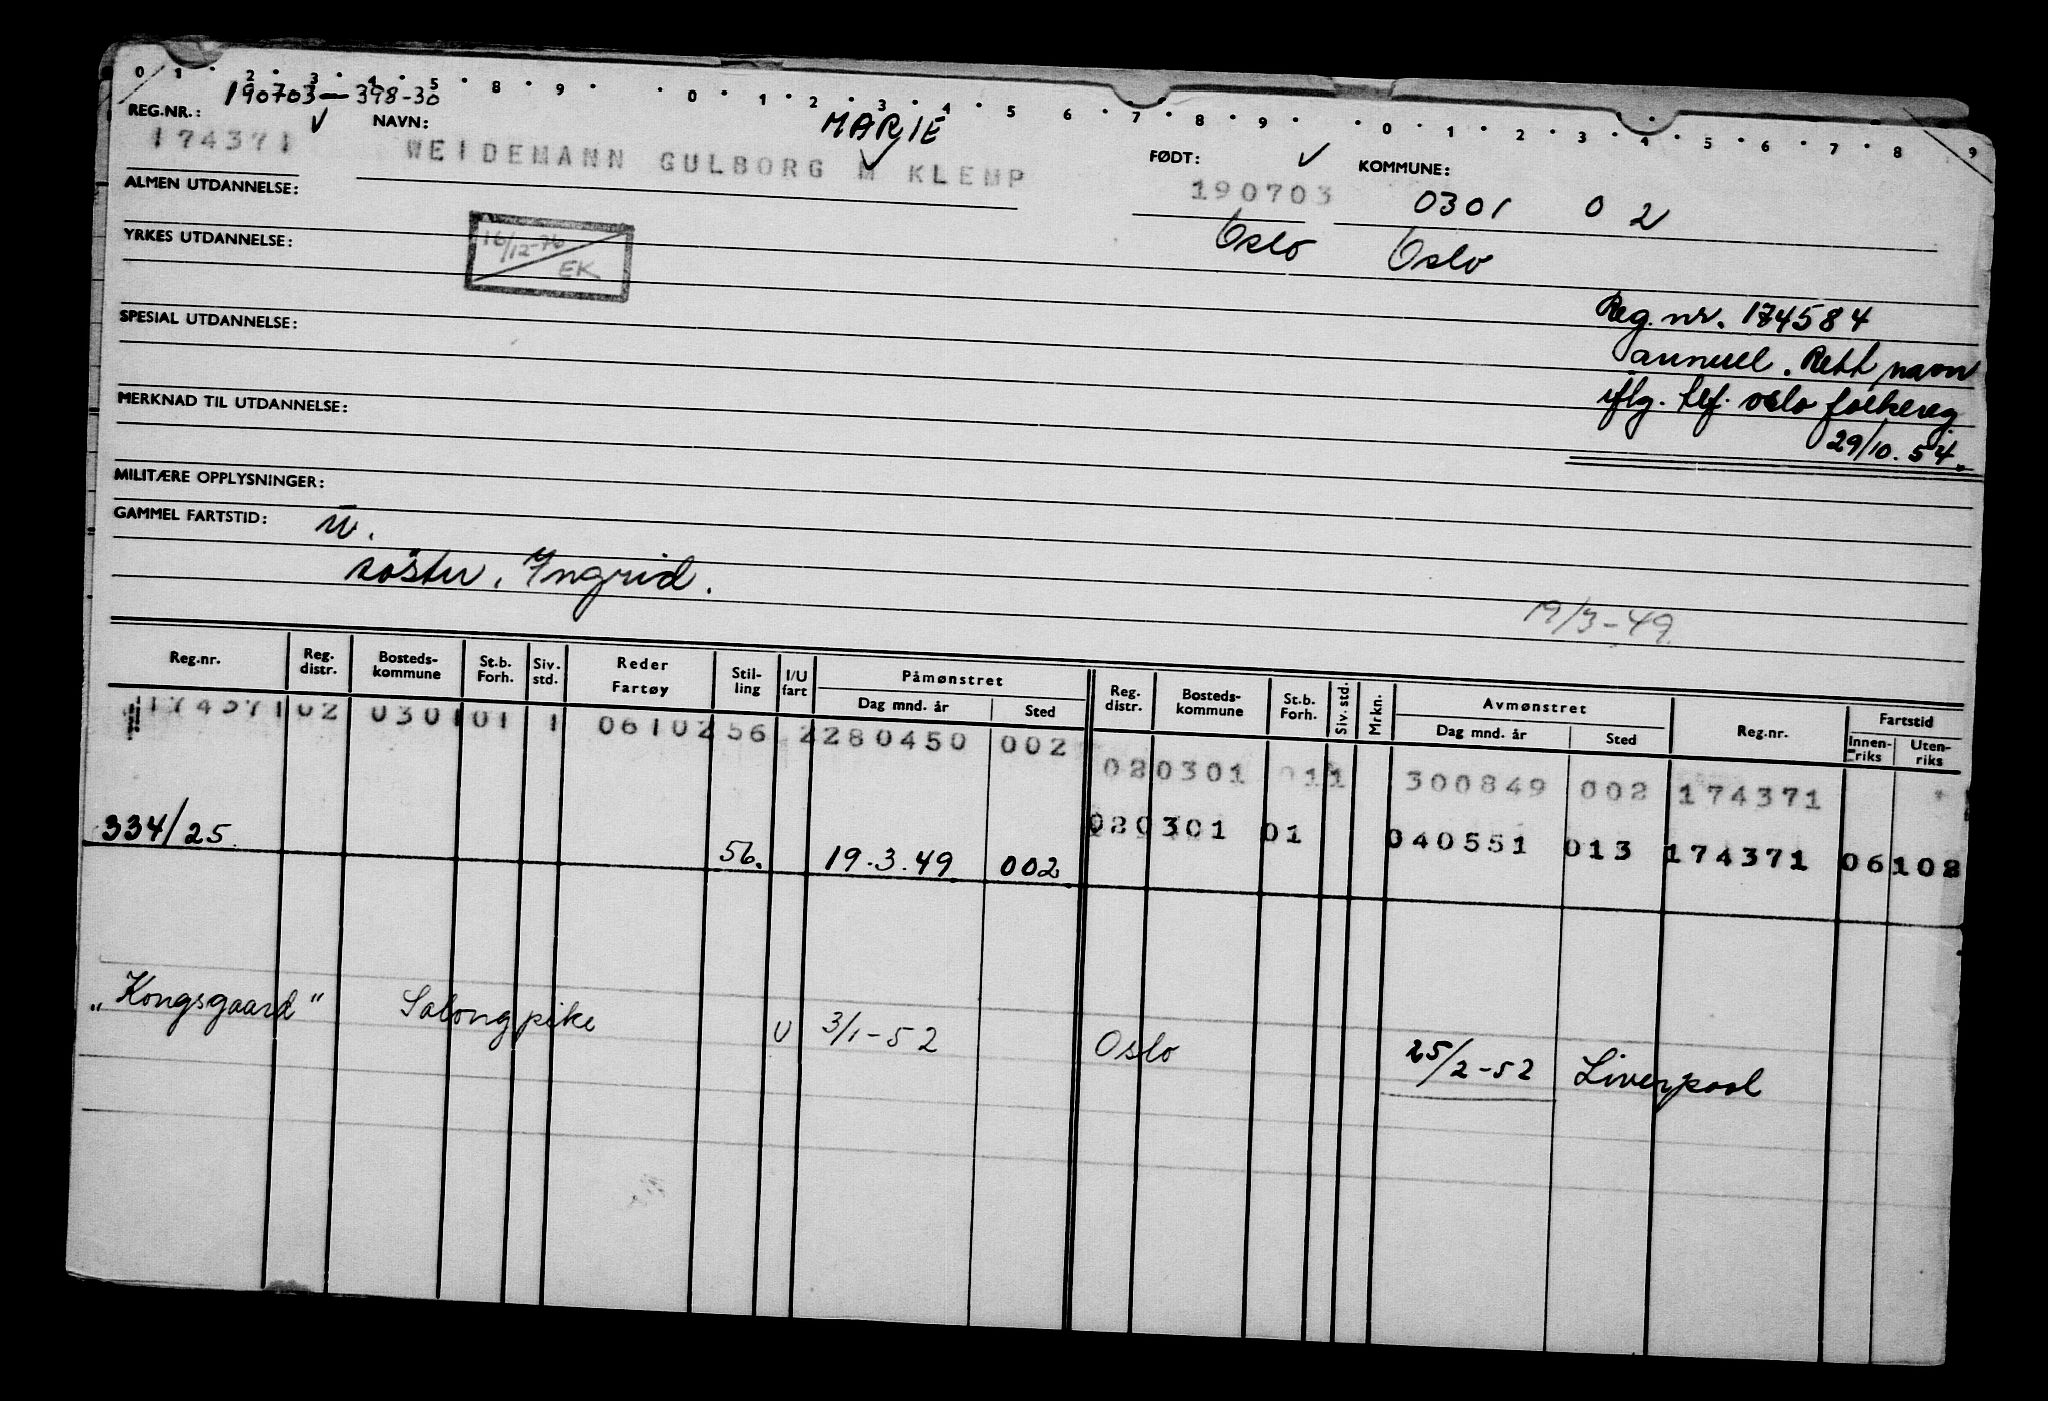 0 1 2 3 4 5 8 9 0 1 2 3 4 5 6 7 8 9 0 1 2 3 4 5 6 7 8 9
190703-398-30
REG.NR.: NAVN: MARIE FØDT: KOMMUNE:
174371 WEIDEMANN GULBORG M KLEMP 190703 0301 02
ALMEN UTDANNELSE: Oslo Oslo
YRKES UTDANNELSE: 16/12-76 EK
Reg.nr. 174584
SPESIAL UTDANNELSE: annull. Rett navn
MERKNAD TIL UTDANNELSE: iflg. tlf. oslo folkereg.
29/10.54.
MILITÆRE OPPLYSNINGER:
GAMMEL FARTSTID:
söster, Ingrid.
19/3-49
Reg.nr. Reg. distr. Bosteds-kommune St.b. Forh. Siv. std. Reder Fartøy Stil-ling I/U fart Påmønstret Dag mnd. år Sted Reg. distr. Bosteds-kommune St.b. Forh. Siv. std. Mrkn. Avmønstret Dag mnd. år Sted Reg.nr. Fartstid Innen-riks Uten-riks
174371 02 0301 01 1 06102 56 2 280450 002
02 0301 01 1 300849 002 174371
02 0301 01 040551 013 174371 06102
334/25. 56. 19.3.49. 002
"Kongsgaard" Salongpike U 3/1-52 Oslo 25/2-52 Liverpool